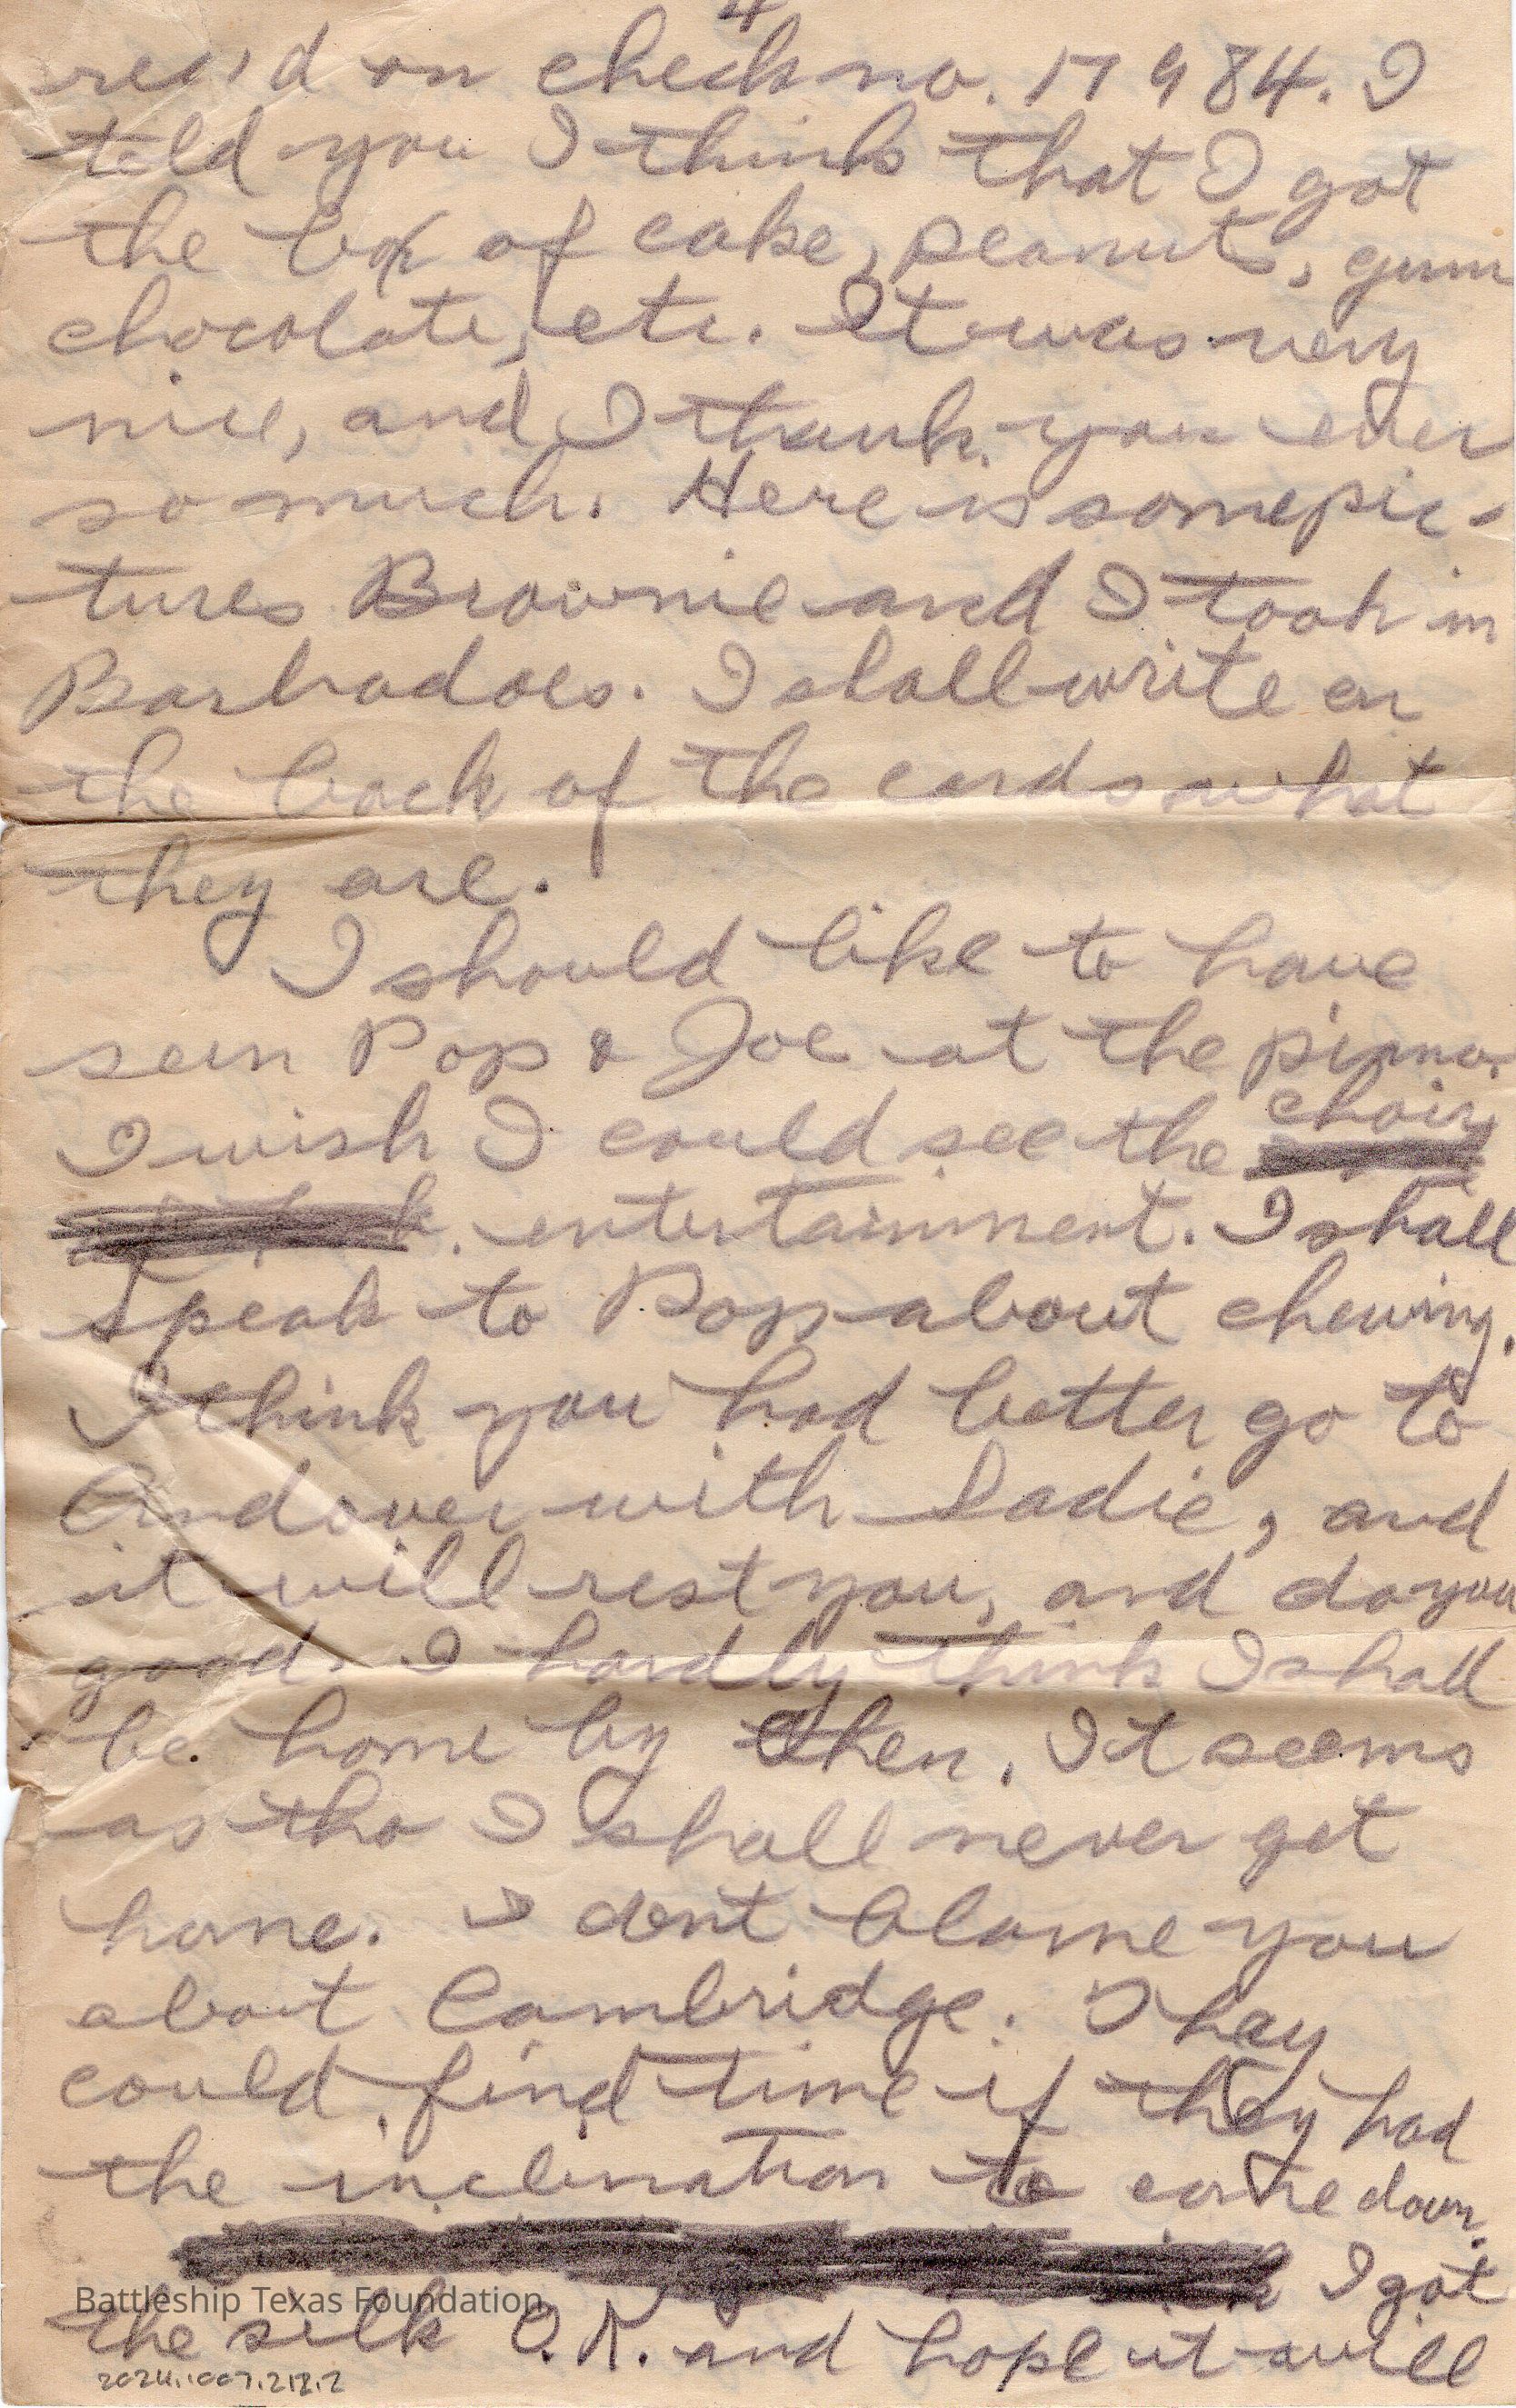 4
rec'd on check no. 17984. I
told you I think that I got
the box of cake, peanuts, gum
chocolate, etc. It was very
nice, and I thank you ever
so much. Here is some pic-
tures Brownie and I took in
Barbadoes. I shall write on
the back of the cards what
they are.
I should like to have
seen Pop & Joe at the piano.
I wish I could see the choir
entertainment. I shall
speak to Pop about chewing.
I think you had better go to
Andover with Sadie, and
it will rest you, and do you
good. I hardly think I shall
be home by then. It seems
as tho I shall never get
home. I dont blame you
about Cambridge. They
could find time if they had
the inclination to come down.
I got
the silk O.K. and hope it will
Battleship Texas Foundation
2024.007.212.2